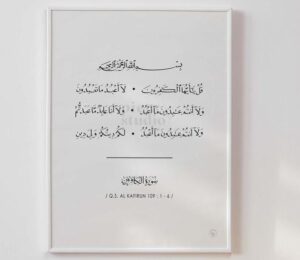 بسم الله الرحمن الرحيم
قل يأيها الكفرون • لا أعبد ما تعبدون
ولا أنتم عبدون ما أعبد • ولا أنا عابد ما عبدتم
ولا أنتم عبدون ما أعبد • لكم دينكم ولي دين
سورة الكافرون
/ Q.S. AL KAFIRUN 109 : 1 - 6 /